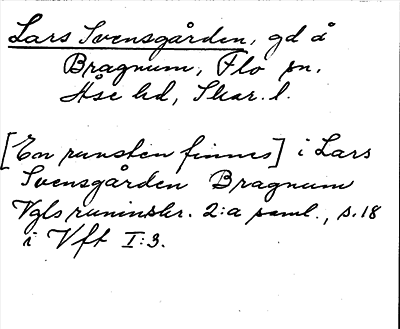 Lars Svensgården, gd å
Bragnum, Flo sn,
Åse hd, Skar. l.
[En runsten finnes] i Lars
Svensgården Bragnum
Vgls runinskr. 2:a saml., s. 18
i Vft I:3.